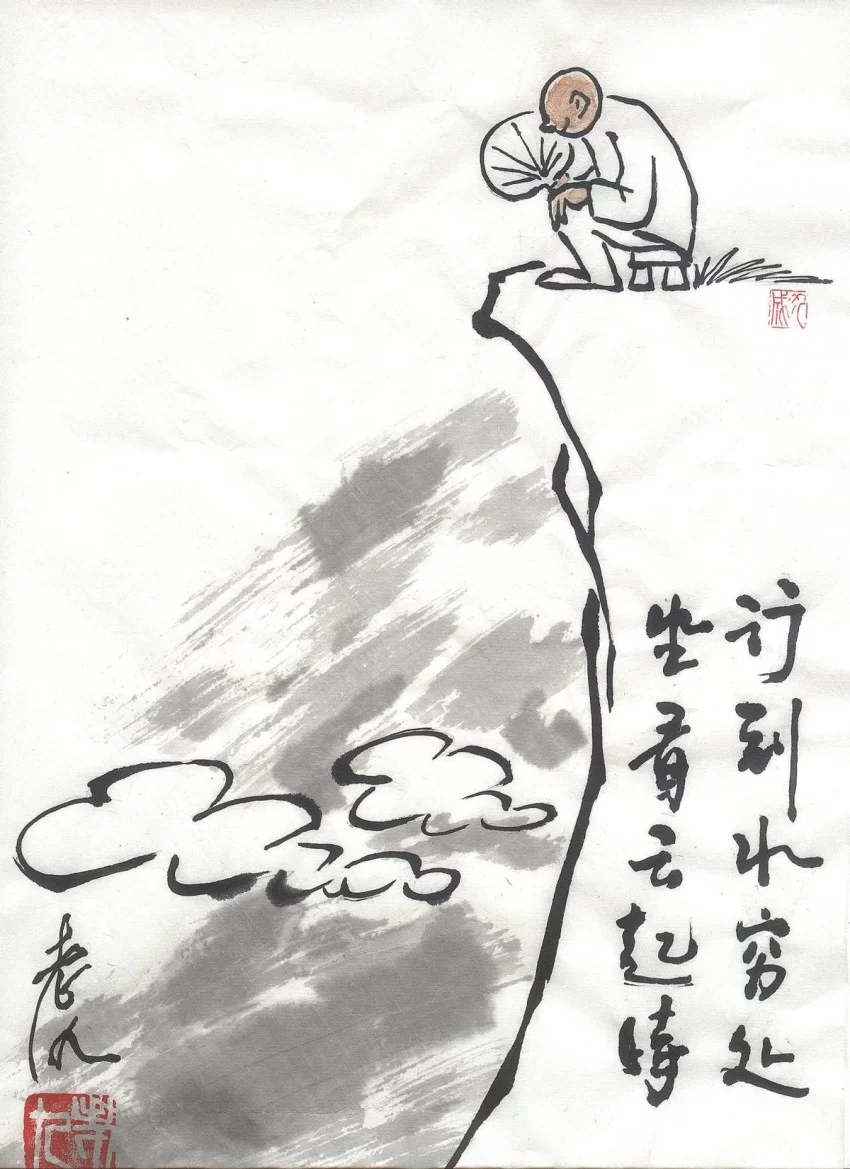 行到水穷处
坐看云起時
老